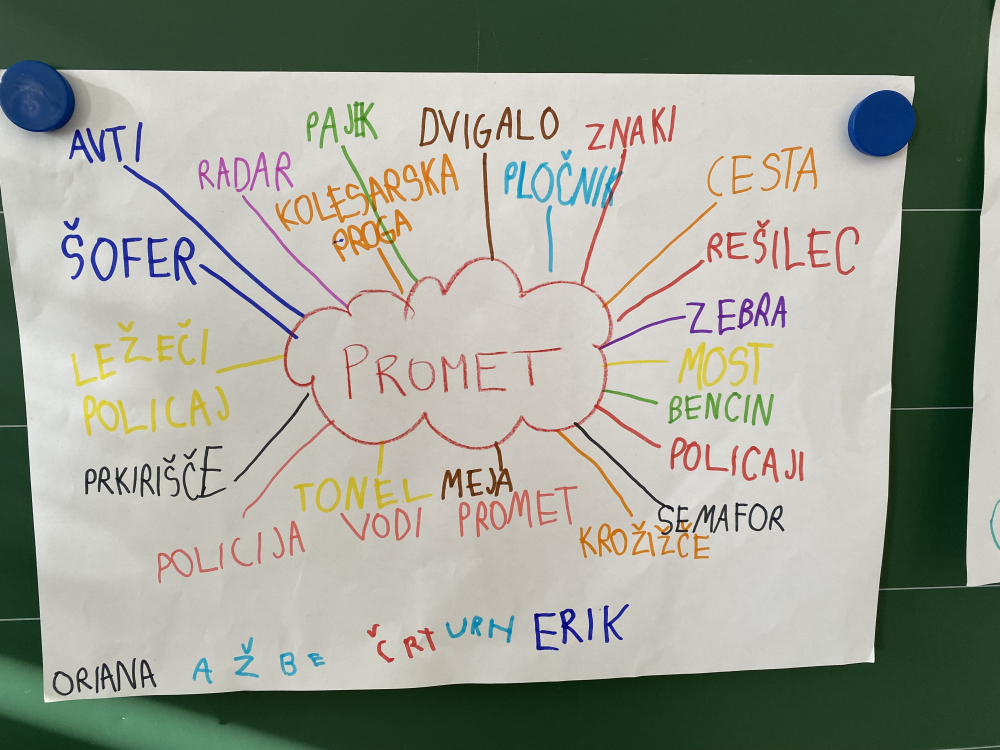 AVTI
RADAR
PAJEK
DVIGALO
ZNAKI
KOLESARSKA
PROGA
PLOČNIK
CESTA
ŠOFER
REŠILEC
ZEBRA
LEŽEČI
POLICAJ
PROMET
MOST
BENCIN
PRKIRIŠČE
TONEL
MEJA
POLICAJI
POLICIJA VODI PROMET
SEMAFOR
KROŽIŽČE
ORIANA
AŽBE
ČRT
URH
ERIK